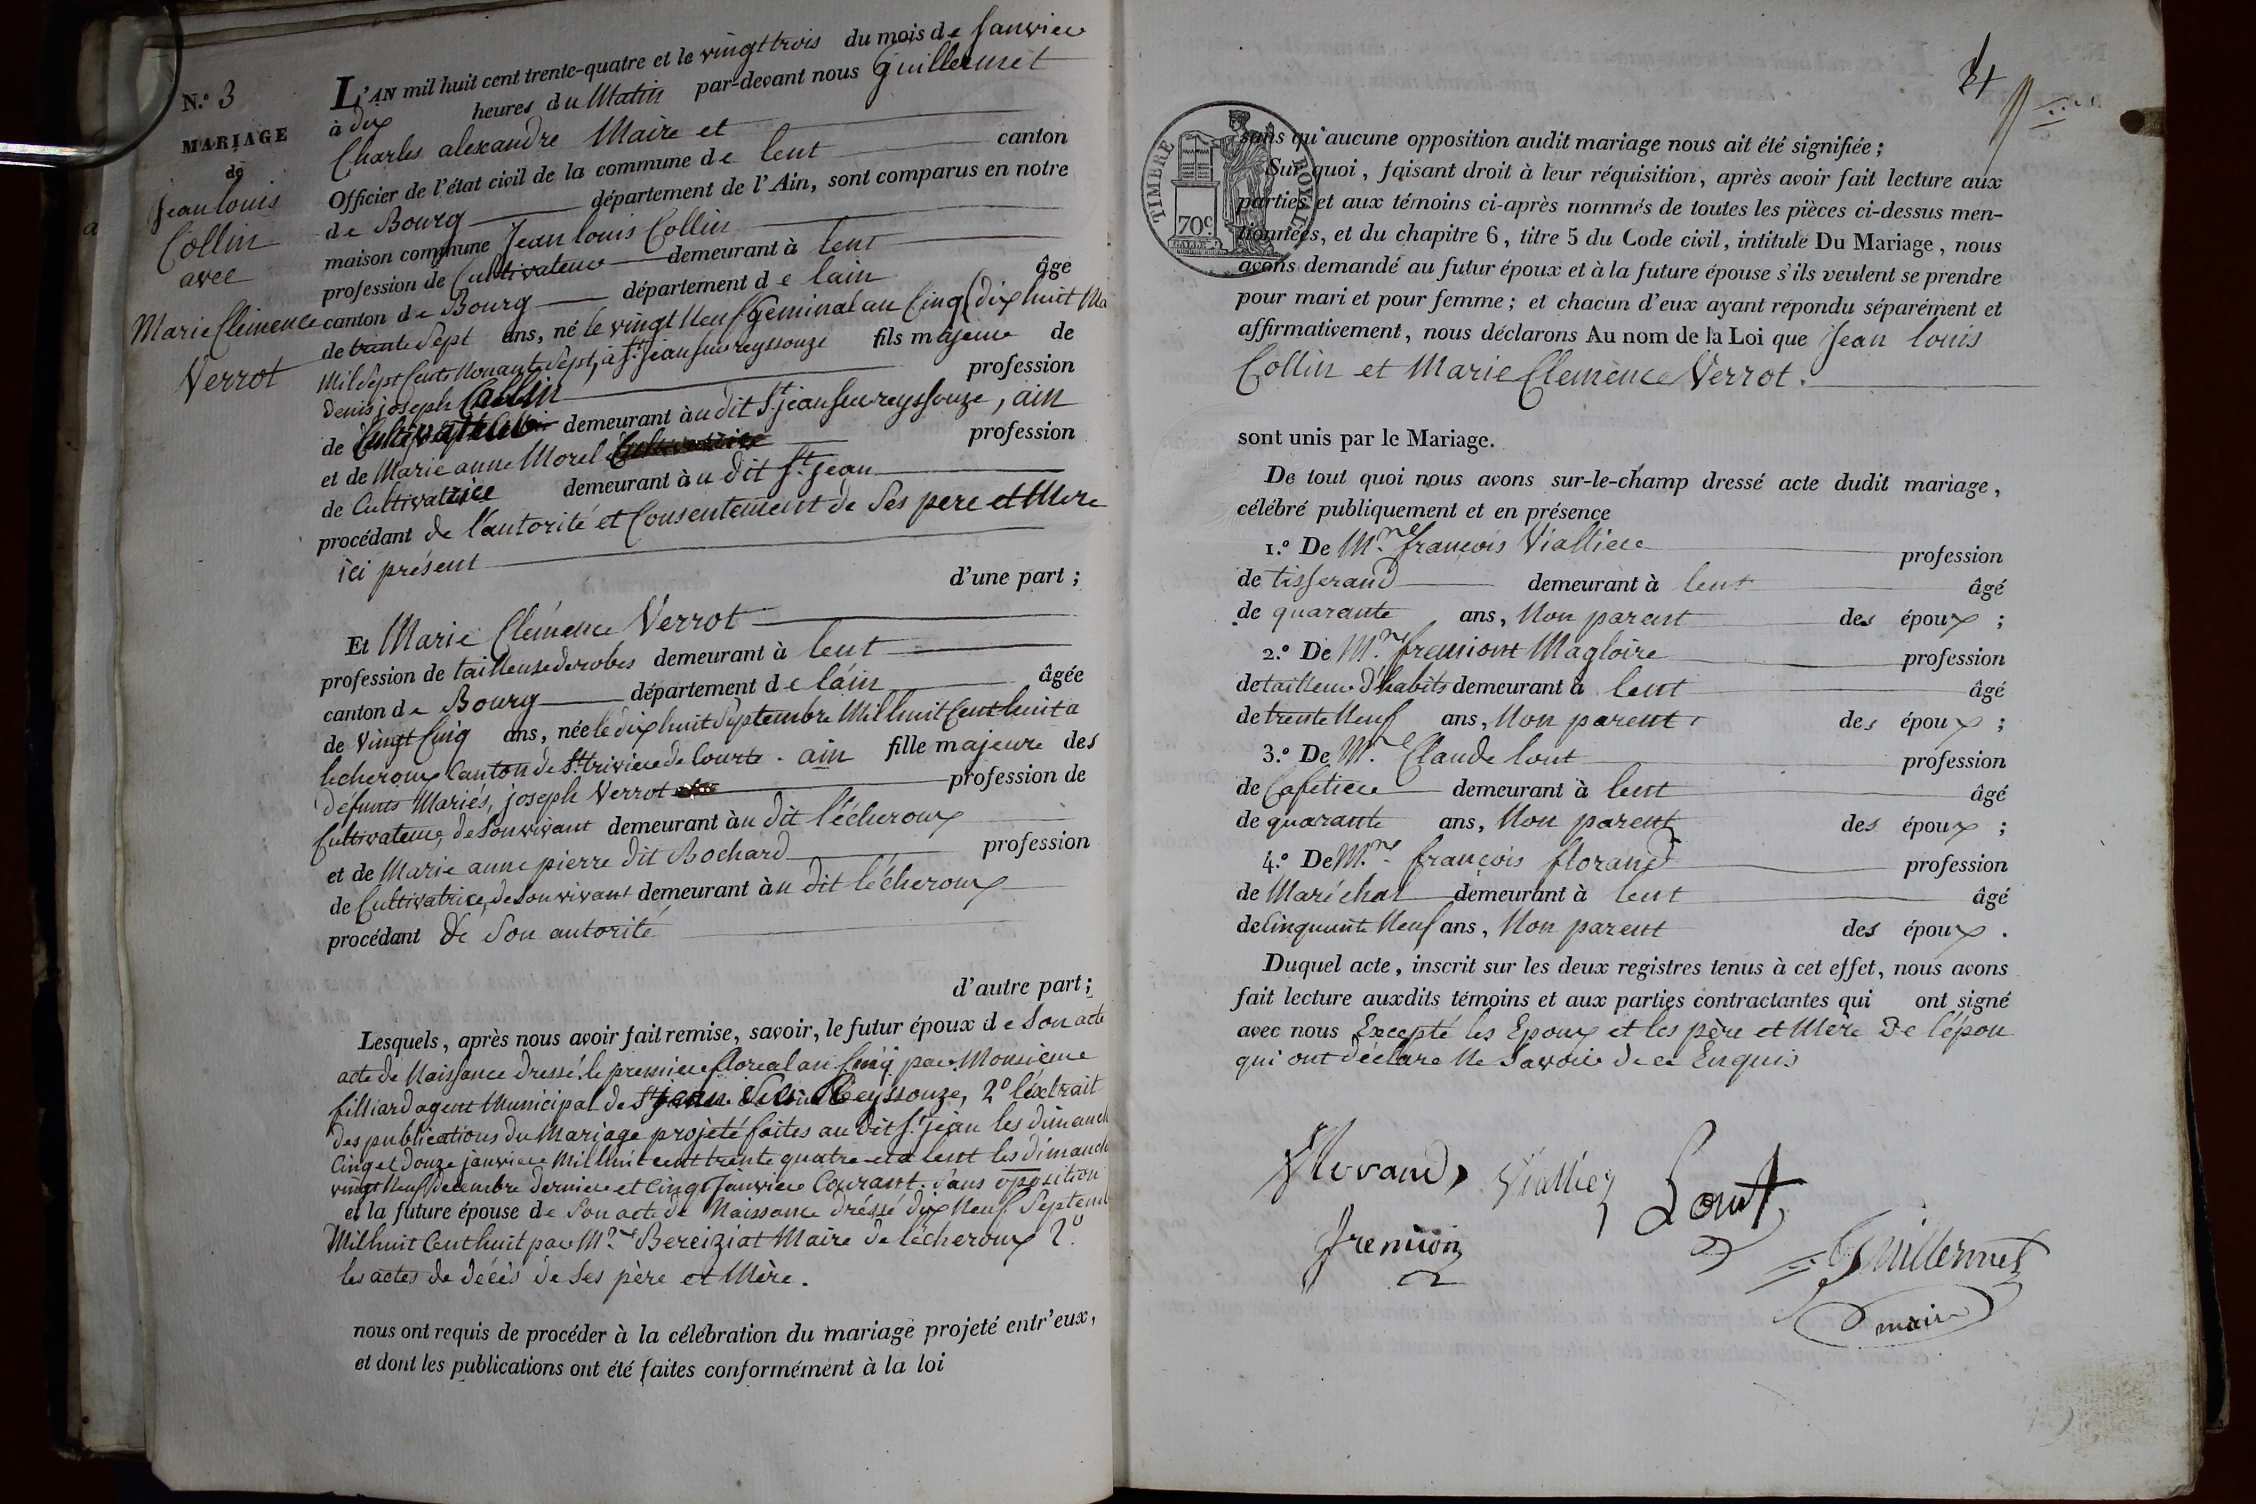 N.º 3
MARIAGE
de
Jean louis
Collin
avec
Marie Clémence
Verrot
L'AN mil huit cent trente-quatre et le vingt trois du mois de Janvier
à dix heures du Matin par-devant nous Guillermet
Charles alexandre Maire et
Officier de l'état civil de la commune de lent canton
de Bourg département de l'Ain, sont comparus en notre
maison commune Jean louis Collin
profession de Cultivateur demeurant à lent
canton de Bourg département de lain âgé
de trente Sept ans, né le vingt Neuf Geminal an Cinq (dix huit Ma
Mil Sept Cents Nonante Sept, à St jean sur reyssouze fils majeur de
Denis joseph Collin profession
de Cultivateur demeurant àu dit St jean sur reyssouze, ain
et de Marie anne Morel profession
de Cultivatrice demeurant àu dit St jean
procédant de l'autorité et Consentement de Ses pere et Mere
ici présent
d'une part ;
Et Marie Clémence Verrot
profession de tailleuse de robes demeurant à lent
canton de Bourg département de láin âgée
de Vingt Cinq ans, née le dix huit Septembre Mil huit Cent huit a
lecheroux Canton de St trivier de Courte . ain fille majeure des
défunts Mariés, joseph Verrot profession de
Cultivateur, de Son vivant demeurant àu dit l'écheroux
et de Marie anne pierre dit Bochard profession
de Cultivatrice, de Son vivant demeurant àu dit lécheroux
procédant de Son autorité
d'autre part ;
Lesquels, après nous avoir fait remise, savoir, le futur époux de Son acte
acte de Naissance dressé le premier floreal an Cinq par Monsieur
filliard agent Municipal de St jean sur Reyssouze, 2º l'éxtrait
des publications du Mariage projeté faites au dit St jean les dimanch
Cinq et Douze janvier Mil huit cent trente quatre et a lent les dimanch
vingt Neuf decembre dernier et Cinq Janvier Courant. sans oposition
et la future épouse de Son acte de Naissance dréssé dix Neuf Septemb
Mil huit Cent huit par Mr Bereiziat Maire de lécheroux 2º
les actes de décès de Ses père et Mère.
nous ont requis de procéder à la célébration du mariage projeté entr'eux,
et dont les publications ont été faites conformément à la loi
TIMBRE ROYAL
70c
sans qu'aucune opposition audit mariage nous ait été signifiée ;
Sur quoi, faisant droit à leur réquisition, après avoir fait lecture aux
parties et aux témoins ci-après nommés de toutes les pièces ci-dessus men-
tionnées, et du chapitre 6, titre 5 du Code civil, intitulé Du Mariage, nous
avons demandé au futur époux et à la future épouse s'ils veulent se prendre
pour mari et pour femme ; et chacun d'eux ayant répondu séparément et
affirmativement, nous déclarons Au nom de la Loi que Jean louis
Collin et Marie Clemence Verrot.
sont unis par le Mariage.
De tout quoi nous avons sur-le-champ dressé acte dudit mariage,
célébré publiquement et en présence
1.º De Mr françois Viallier profession
de tisserand demeurant à lent âgé
de quarante ans, Non parent des époux ;
2.º De Mr fremiont Magloire profession
de tailleur d'habits demeurant à lent âgé
de trente Neuf ans, Non parent des époux ;
3.º De Mr Claude lout profession
de Cafetier demeurant à lent âgé
de quarante ans, Non parent des époux ;
4.º De Mr françois florand profession
de Maréchal demeurant à lent âgé
de Cinquante Neuf ans, Non parent des époux .
Duquel acte, inscrit sur les deux registres tenus à cet effet, nous avons
fait lecture auxdits témoins et aux parties contractantes qui ont signé
avec nous Excepté les Epoux et les père et Mère De l'épou
qui ont déclare Ne Savoir de ce Enquis
Viallier
Lout
fremion
Guillermet
maire